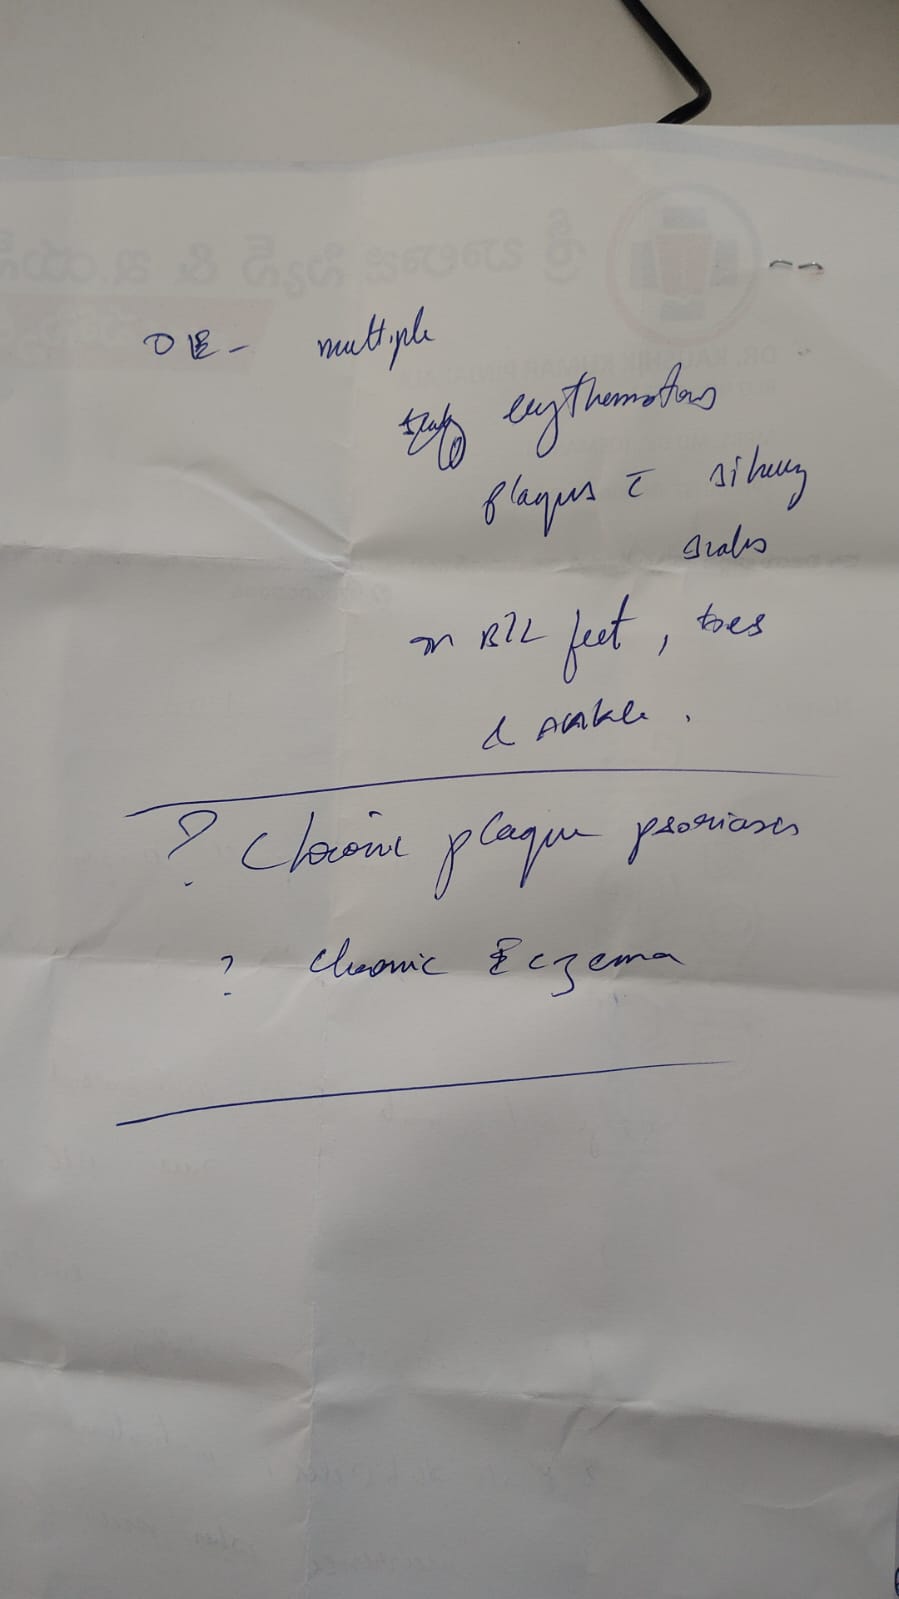 OE - multiple
scaly erythematous
plaques c̄ silvery
scales
on B/L feet, toes
& ankle.
? Chronic plaque psoriasis
? chronic Eczema